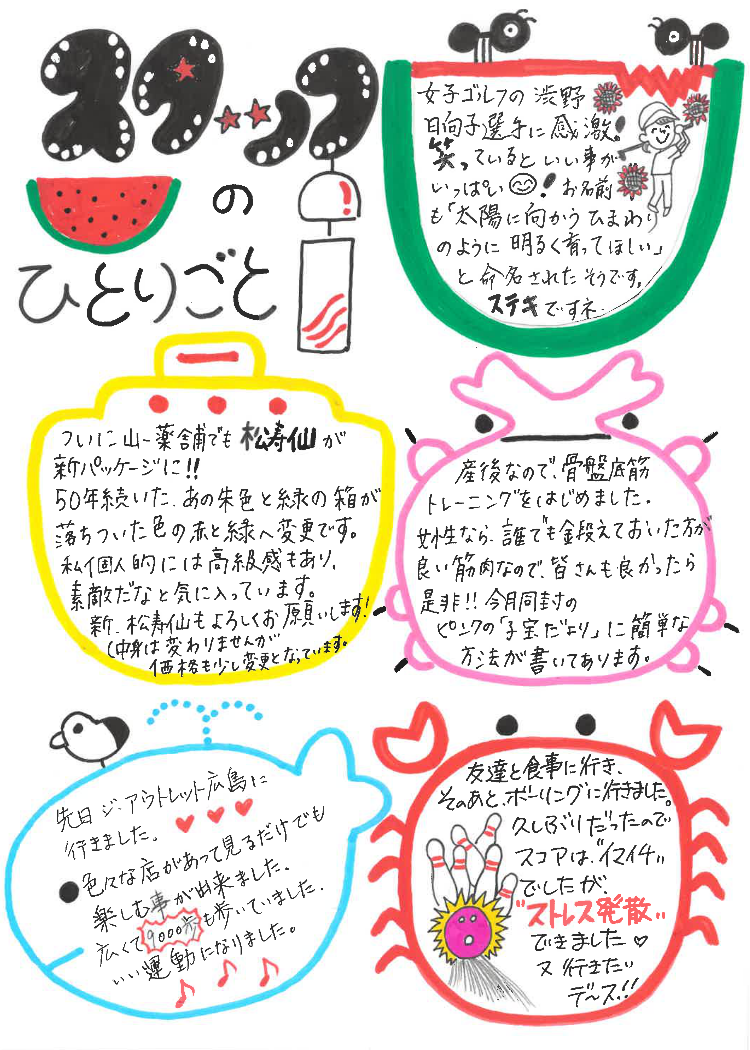 スタッフ
の
ひとりごと
女子ゴルフの 渋野
日向子選手に 感激!
笑っていると いい事が
いっぱい ! お名前
も「太陽に向かう ひまわり
のように 明るく育ってほしい」
と 命名された そうです。
ステキですネ
ついに 山一薬舗でも 松寿仙が
新パッケージに!!
50年続いた、あの朱色と緑の箱が
落ちついた色の赤と緑へ変更です。
私個人的には高級感もあり、
素敵だなと気に入っています。
新、松寿仙もよろしくお願いします!
(中身は変わりませんが
価格も少し変更となっています。
産後なので、骨盤底筋
トレーニングをはじめました。
女性なら、誰でも鍛えておいた方が
良い筋肉なので、皆さんも良かったら
是非!! 今月同封の
ピンクの「子宝だより」に簡単な
方法が書いてあります。
先日 ジ・アウトレット広島に
行きました。
色々な店があって見るだけでも
楽しむ事が出来ました。
広くて9000歩も歩いていました。
いい運動になりました。
友達と食事に行き、
そのあと、ボーリングに行きました。
久しぶりだったので
スコアは、"イマイチ"
でしたが、
"ストレス発散"
できました♡
又 行きたい
デース!!